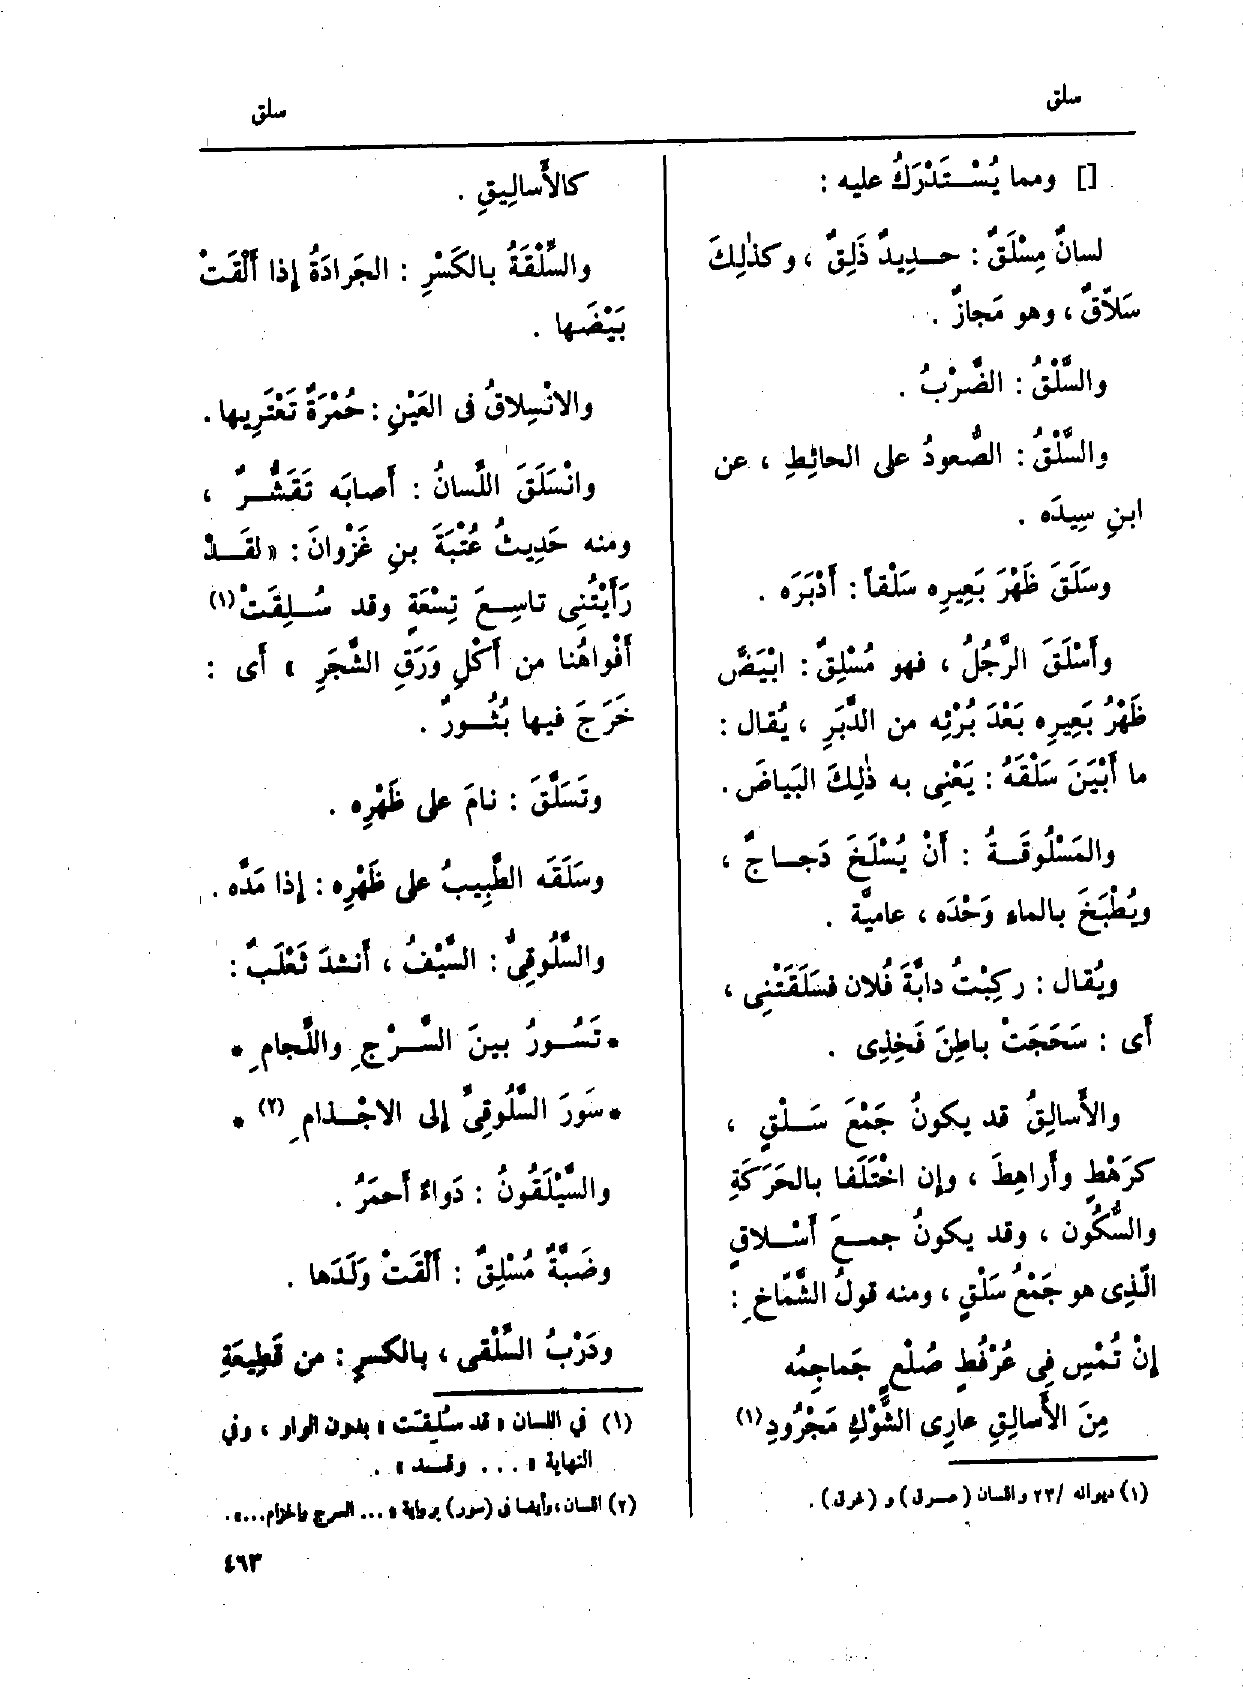 سلق
سلق
[] ومما يُسْتَدْرَكُ عليه :
لسانٌ مِسْلَقٌ : حدِيدٌ ذَلِقٌ ، وكذٰلِكَ
سَلّاقٌ ، وهو مَجازٌ .
والسَّلْقُ : الضَّرْبُ .
والسَّلْقُ : الصُّعودُ على الحائِطِ ، عن
ابنِ سِيدَه .
وسَلَقَ ظَهْرَ بَعِيرِه سَلْقاً : أَدْبَرَه .
وأَسْلَقَ الرَّجُلُ ، فهو مُسْلِقٌ : ابْيَضَّ
ظَهْرُ بَعِيرِه بَعْدَ بُرْئِه من الدَّبَرِ ، يُقال :
ما أَبْيَنَ سَلْقَهُ : يَعْنِى به ذٰلِكَ البَياضَ .
والمَسْلُوقَةُ : أَنْ يُسْلَخَ دَجاجٌ ،
ويُطْبَخَ بالماءِ وَحْدَه ، عامِيَّة .
ويُقال : ركِبْتُ دابَّةَ فُلان فسَلَقَتْنِى ،
أَى : سَحَجَتْ باطِنَ فَخِذِى .
والأَسالِقُ قد يكونُ جَمْعَ سَلْقٍ ،
كرَهْطٍ وأَراهِطَ ، وإن اخْتَلَفا بالحَرَكَةِ
والسُّكُون ، وقد يكونُ جمعَ أَسْلاقٍ
الَّذِى هو جَمْعُ سَلْقٍ ، ومنه قولُ الشَّمّاخِ :
إنْ تُمْسِ فِى عُرْفُطٍ صُلْعٍ جَماجِمُه
مِنَ الأَسالِقِ عارِى الشَّوْكِ مَجْرُودِ (١)
(١) ديوانه /٢٣ واللسان (صرق) و (غرق) .
كالأَسالِيقِ .
والسِّلْقَةُ بالكَسْرِ : الجَرادَةُ إذا أَلْقَتْ
بَيْضَها .
والانْسِلاقُ فى العَيْنِ : حُمْرَةٌ تَعْتَرِيها .
وانْسَلَقَ اللِّسانُ : أَصابَه تَقَشُّرٌ ،
ومنه حَدِيثُ عُتْبَةَ بنِ غَزْوانَ : « لقَدْ
رَأَيْتُنِى تاسِعَ تِسْعَةٍ وقد سُلِقَتْ (١)
أَفْواهُنا من أَكْلِ وَرَقِ الشَّجَرِ » أَى :
خَرَجَ فيها بُثُورٌ .
وتَسَلَّقَ : نامَ على ظَهْرِه .
وسَلَقَه الطَّبِيبُ على ظَهْرِه : إذا مَدَّه .
والسَّلُوقِىُّ : السَّيْفُ ، أَنشدَ ثَعْلَبٌ :
* تَسُورُ بينَ السَّرْجِ واللِّجامِ *
* سَوْرَ السَّلُوقِىِّ إلى الاجْذامِ (٢) *
والسَّيْلَقُونُ : دَواءٌ أَحمَرُ .
وضَبَّةٌ مُسْلِقٌ : أَلْقَتْ وَلَدَها .
ودَرْبُ السِّلْقِى ، بالكسرِ : من قَطِيعَةِ
(١) فى اللسان « قد سُلِقَت » بدون الواو ، وفي
النهاية « ... وقد » .
(٢) اللسان ، وأيضا فى (سور) برواية « ... السرج والحزام ... » .
٤٦٣